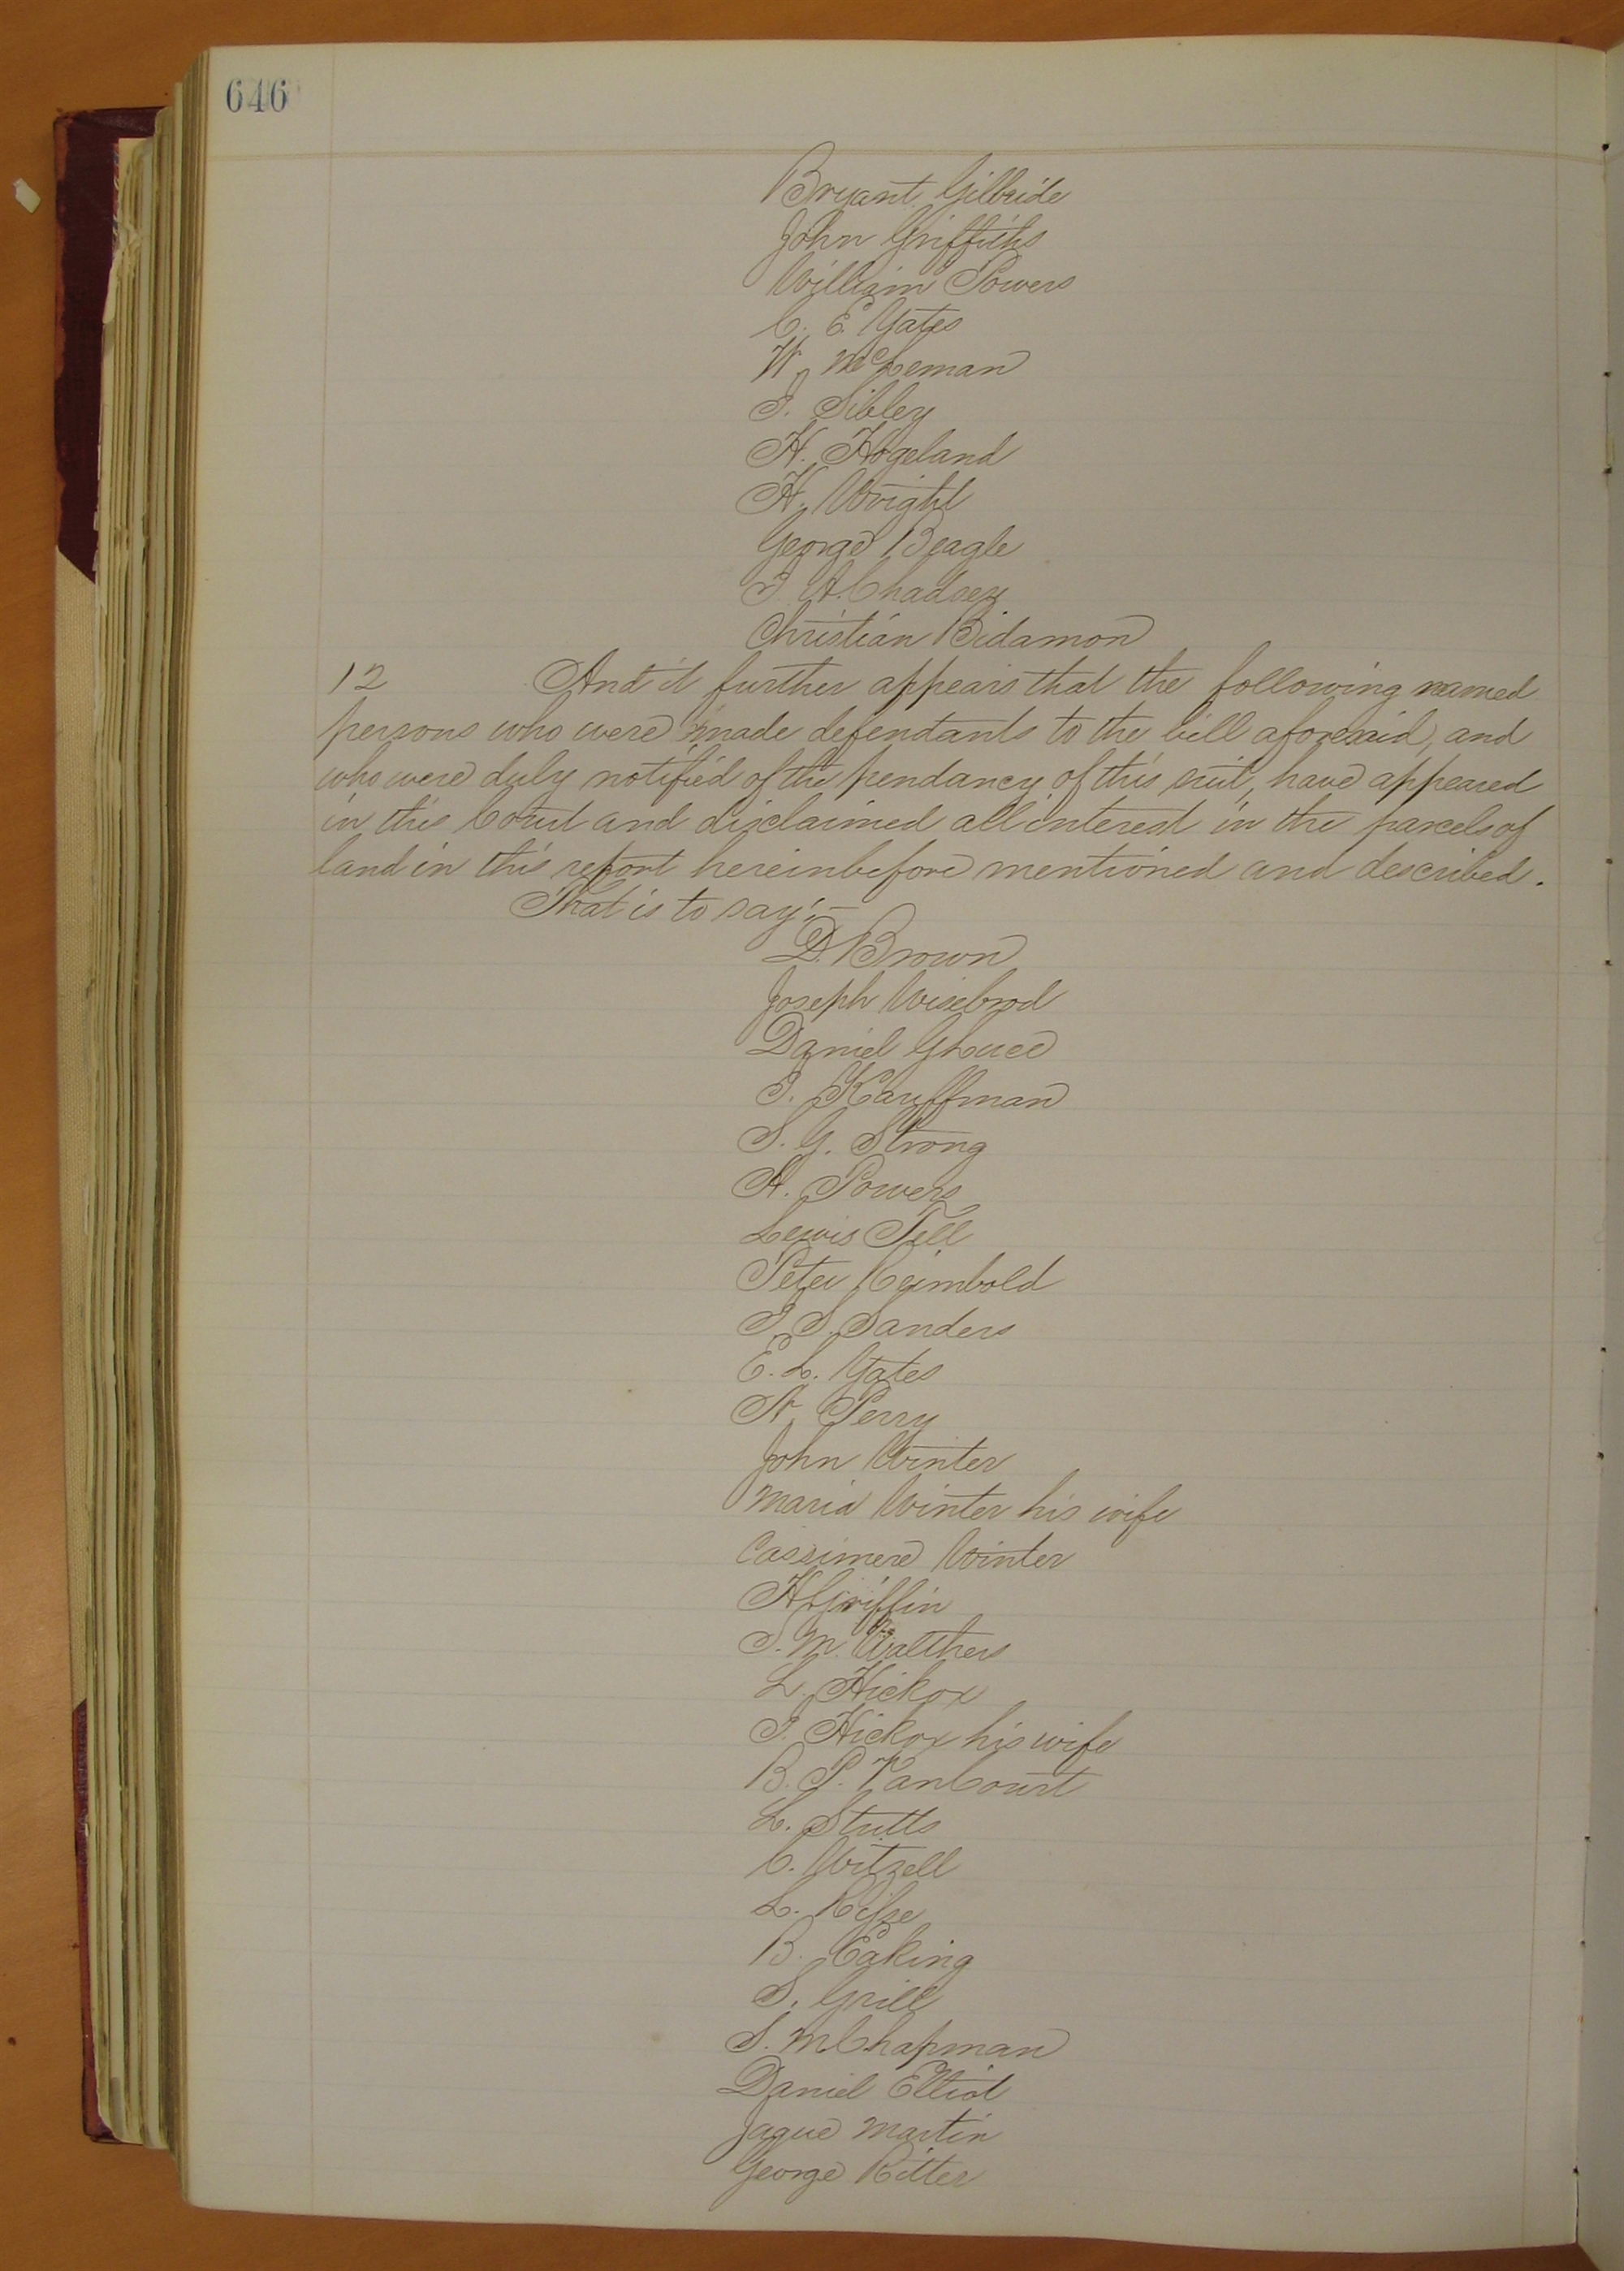 646
Bryant Gilbride
John Griffiths
William Powers
C. E. Yates
W McLeman
I. Sibley
H. Hogeland
H. Wright
George Beagle
I. A. Chadsey
Christian Bidamon
12 And it further appears that the following named
persons who were made defendants to the bill aforesaid, and
who were duly notified of the pendancy of this suit, have appeared
in this Court and disclaimed all interest in the parcels of
land in this report hereinbefore mentioned and described.
That is to say:—
D. Brown
Joseph Wisebrod
Daniel
I. Kauffman
S. G. Strong
A. Powers
Lewis Tell
Peter Reimbold
I. S. Sanders
E. L. Yates
A. Perry
John Winter
Maria Winter his wife
Cassimere Winter
H Griffin
S. M. Walthers
L. Hickox
I. Hickox his wife
B. P. VanCourt
L. Stutts
C. Witzell
L. Risse
B. Eaking
S. Grill
S. M Chapman
Daniel Elliot
Jaque Martin
George Ritter